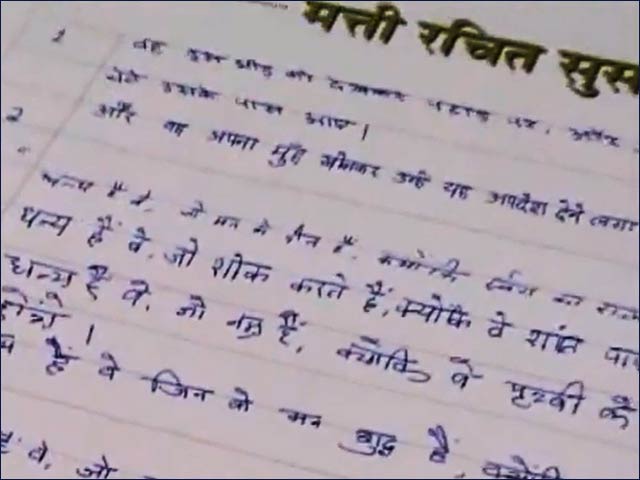 मत्ती रचित सुस
1 वह इस भीड़ को देखकर पहाड़ पर,
उसके पास आए।
2 और वह अपना मुँह खोलकर उन्हें यह उपदेश देने लगा
धन्य हैं वे, जो मन के दीन हैं, क्योंकि स्वर्ग का राज्य
धन्य हैं वे, जो शोक करते हैं, क्योंकि वे शांति पा
धन्य हैं वे, जो नम्र हैं, क्योंकि वे पृथ्वी के
होंगे।
हैं वे जिन के मन शुद्ध हैं, क्योंकि
हैं वे, जो